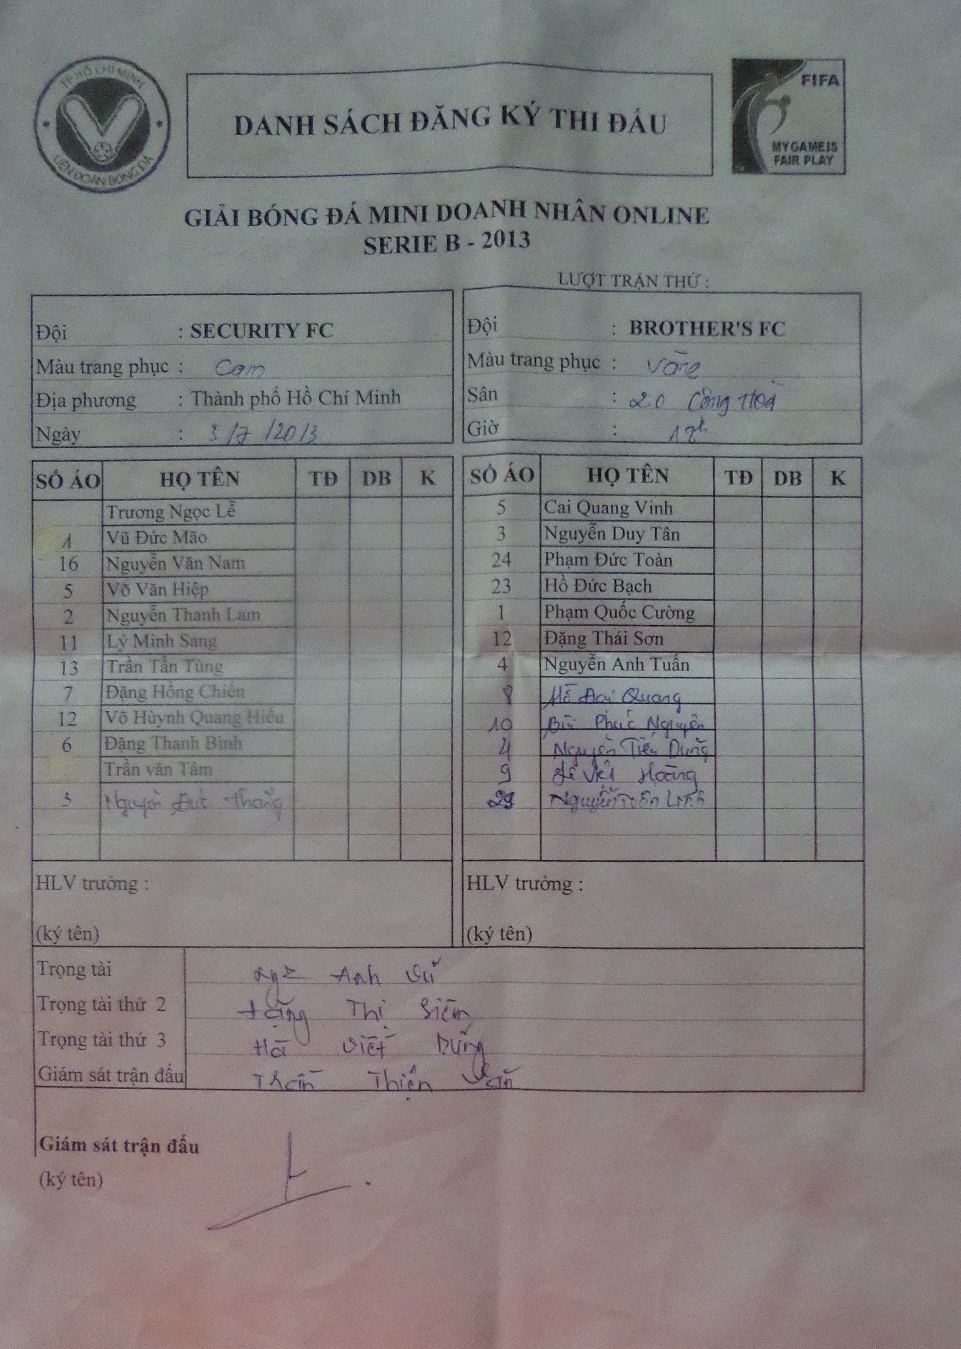 TP HỒ CHÍ MINH
LIÊN ĐOÀN BÓNG ĐÁ
DANH SÁCH ĐĂNG KÝ THI ĐẤU
FIFA
MY GAME IS
FAIR PLAY
GIẢI BÓNG ĐÁ MINI DOANH NHÂN ONLINE
SERIE B - 2013
LƯỢT TRẬN THỨ :
Đội : SECURITY FC
Màu trang phục : Cam
Địa phương : Thành phố Hồ Chí Minh
Ngày : 3/7/2013
Đội : BROTHER'S FC
Màu trang phục : Vàng
Sân : 20 Cộng Hoà
Giờ : 18h
SỐ ÁO HỌ TÊN TĐ DB K
Trương Ngọc Lễ
1 Vũ Đức Mão
16 Nguyễn Văn Nam
5 Võ Văn Hiệp
2 Nguyễn Thanh Lam
11 Lý Minh Sang
13 Trần Tấn Tùng
7 Đặng Hồng Chiến
12 Võ Hùynh Quang Hiếu
6 Đặng Thanh Bình
Trần văn Tâm
3 Nguyễn Đức Thắng
SỐ ÁO HỌ TÊN TĐ DB K
5 Cai Quang Vinh
3 Nguyễn Duy Tân
24 Phạm Đức Toàn
23 Hồ Đức Bạch
1 Phạm Quốc Cường
12 Đặng Thái Sơn
4 Nguyễn Anh Tuấn
8 Quang
10 Bùi Phúc Nguyên
4 Nguyễn Tiến Dũng
9 Hoàng
29 Nguyễn
HLV trưởng :
(ký tên)
HLV trưởng :
(ký tên)
Trọng tài Anh Vũ
Trọng tài thứ 2 Đặng Thị
Trọng tài thứ 3 Hà Viết Dũng
Giám sát trận đấu Thiện
Giám sát trận đấu
(ký tên)